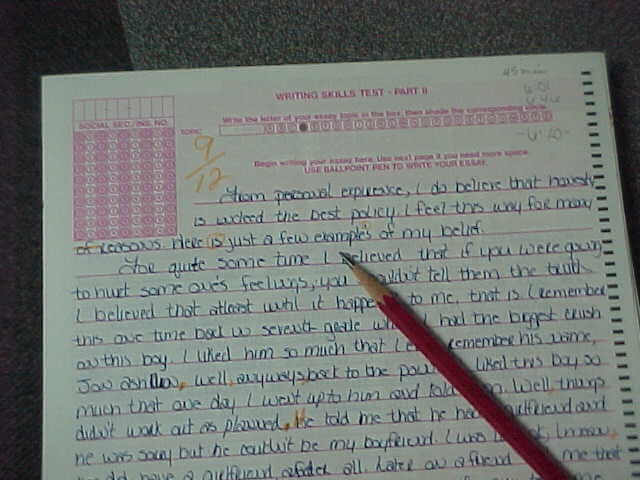 45 min
WRITING SKILLS TEST - PART II
Write the letter of your essay topic in the box, then shade the corresponding circle.
SOCIAL SEC./INS. NO.
TOPIC
9/12
-6:20-
Begin writing your essay here. Use next page if you need more space.
USE BALLPOINT PEN TO WRITE YOUR ESSAY.
From personal experience, I do believe that honesty
is indeed the best policy. I feel this way for many
of reasons. Here is just a few examples of my belief.
For quite some time I believed that if you were going
to hurt some one's feelings, you couldn't tell them the truth.
I believed that atleast until it happe to me, that is I remember
this one time back in seventh grade I had the biggest crush
on this boy. I liked him so much that I remember his name,
Jason , well, anyways, back to the I liked this boy so
much that one day I went up to him and told Well, things
didn't work out as planned. He told me that he had girlfriend and
he was sorry but he couldn't be my boyfriend. I was I know,
have a girlfriend after all. Later on a friend me that